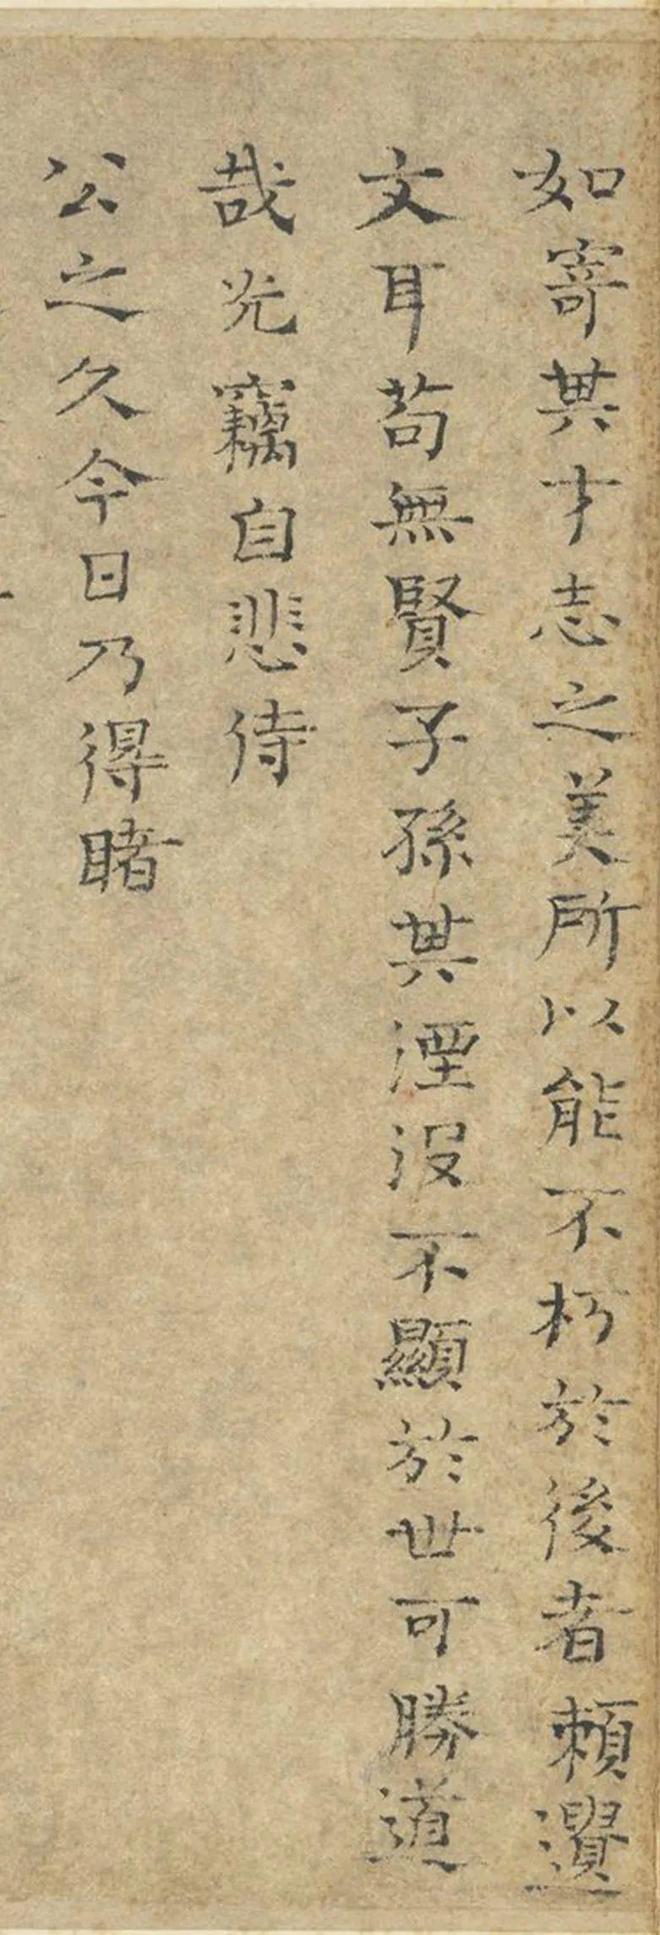 如寄其才志之美所以能不朽於後者賴遺
文耳苟無賢子孫其湮没不顯於世可勝道
哉光竊自悲侍
公之久今日乃得睹